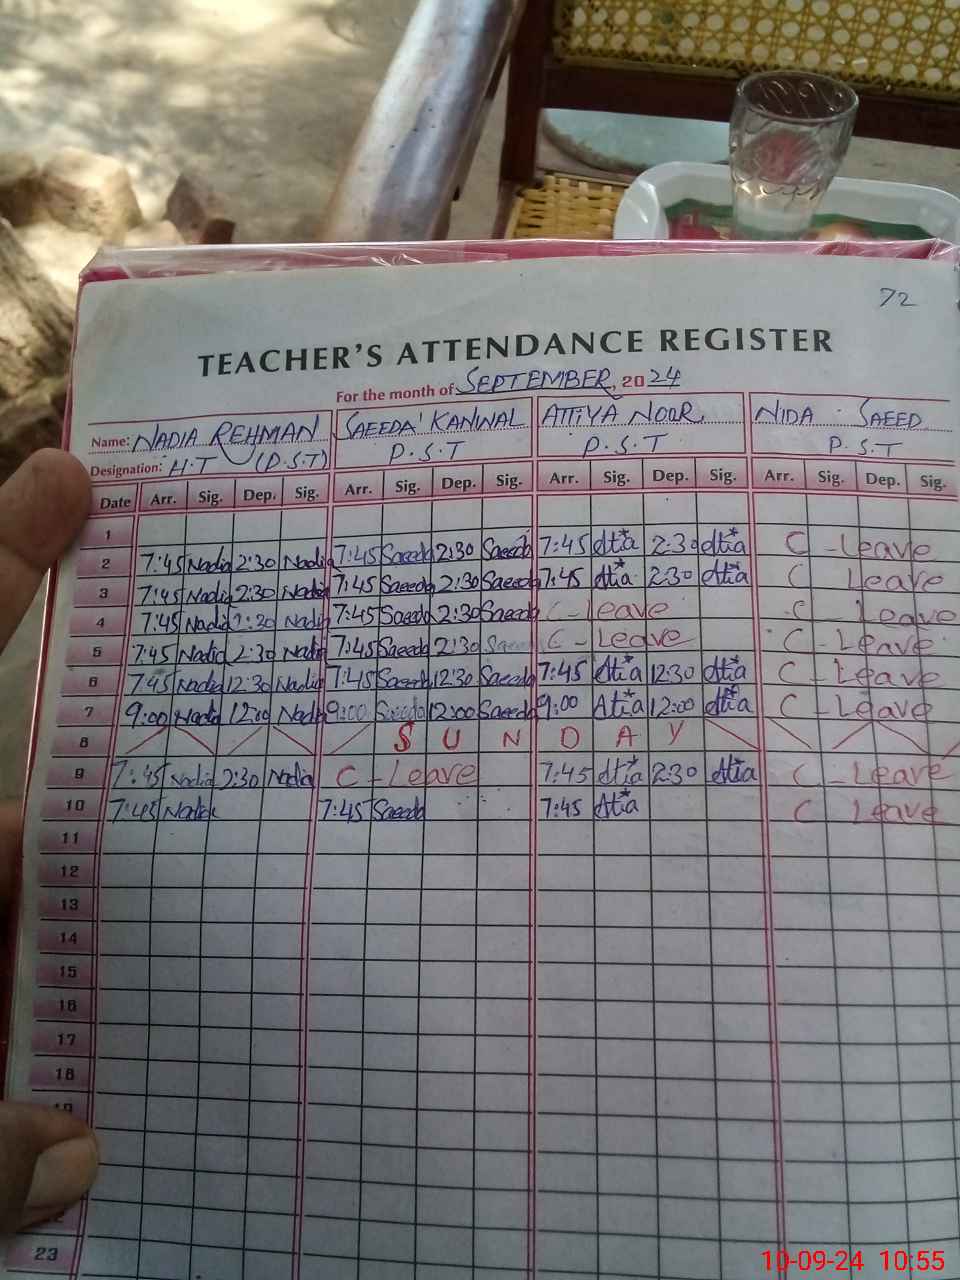 72
TEACHER'S ATTENDANCE REGISTER
For the month of SEPTEMBER, 2024
Name: NADIA REHMAN SAEEDA KANWAL ATTIYA NOOR NIDA SAEED
Designation: H.T (P.S.T) P.S.T P.S.T P.S.T
Date Arr. Sig. Dep. Sig. Arr. Sig. Dep. Sig. Arr. Sig. Dep. Sig. Arr. Sig. Dep. Sig.
1
2 7:45 Nadia 2:30 Nadia 7:45 Saeeda 2:30 Saeeda 7:45 Attia 2:30 Attia C - Leave
3 7:45 Nadia 2:30 Nadia 7:45 Saeeda 2:30 Saeeda 7:45 Attia 2:30 Attia C Leave
4 7:45 Nadia 2:30 Nadia 7:45 Saeeda 2:30 Saeeda C - Leave C - Leave
5 7:45 Nadia 2:30 Nadia 7:45 Saeeda 2:30 Saeeda C - Leave C - Leave
6 7:45 Nadia 12:30 Nadia 7:45 Saeeda 12:30 Saeeda 7:45 Attia 12:30 Attia C - Leave
7 9:00 Nadia 12:00 Nadia 9:00 Saeeda 12:00 Saeeda 9:00 Attia 12:00 Attia C - Leave
8 S U N D A Y
9 7:45 Nadia 2:30 Nadia C - Leave 7:45 Attia 2:30 Attia C - Leave
10 7:45 Nadia 7:45 Saeeda 7:45 Attia C Leave
11
12
13
14
15
16
17
18
19
23
10-09-24 10:55